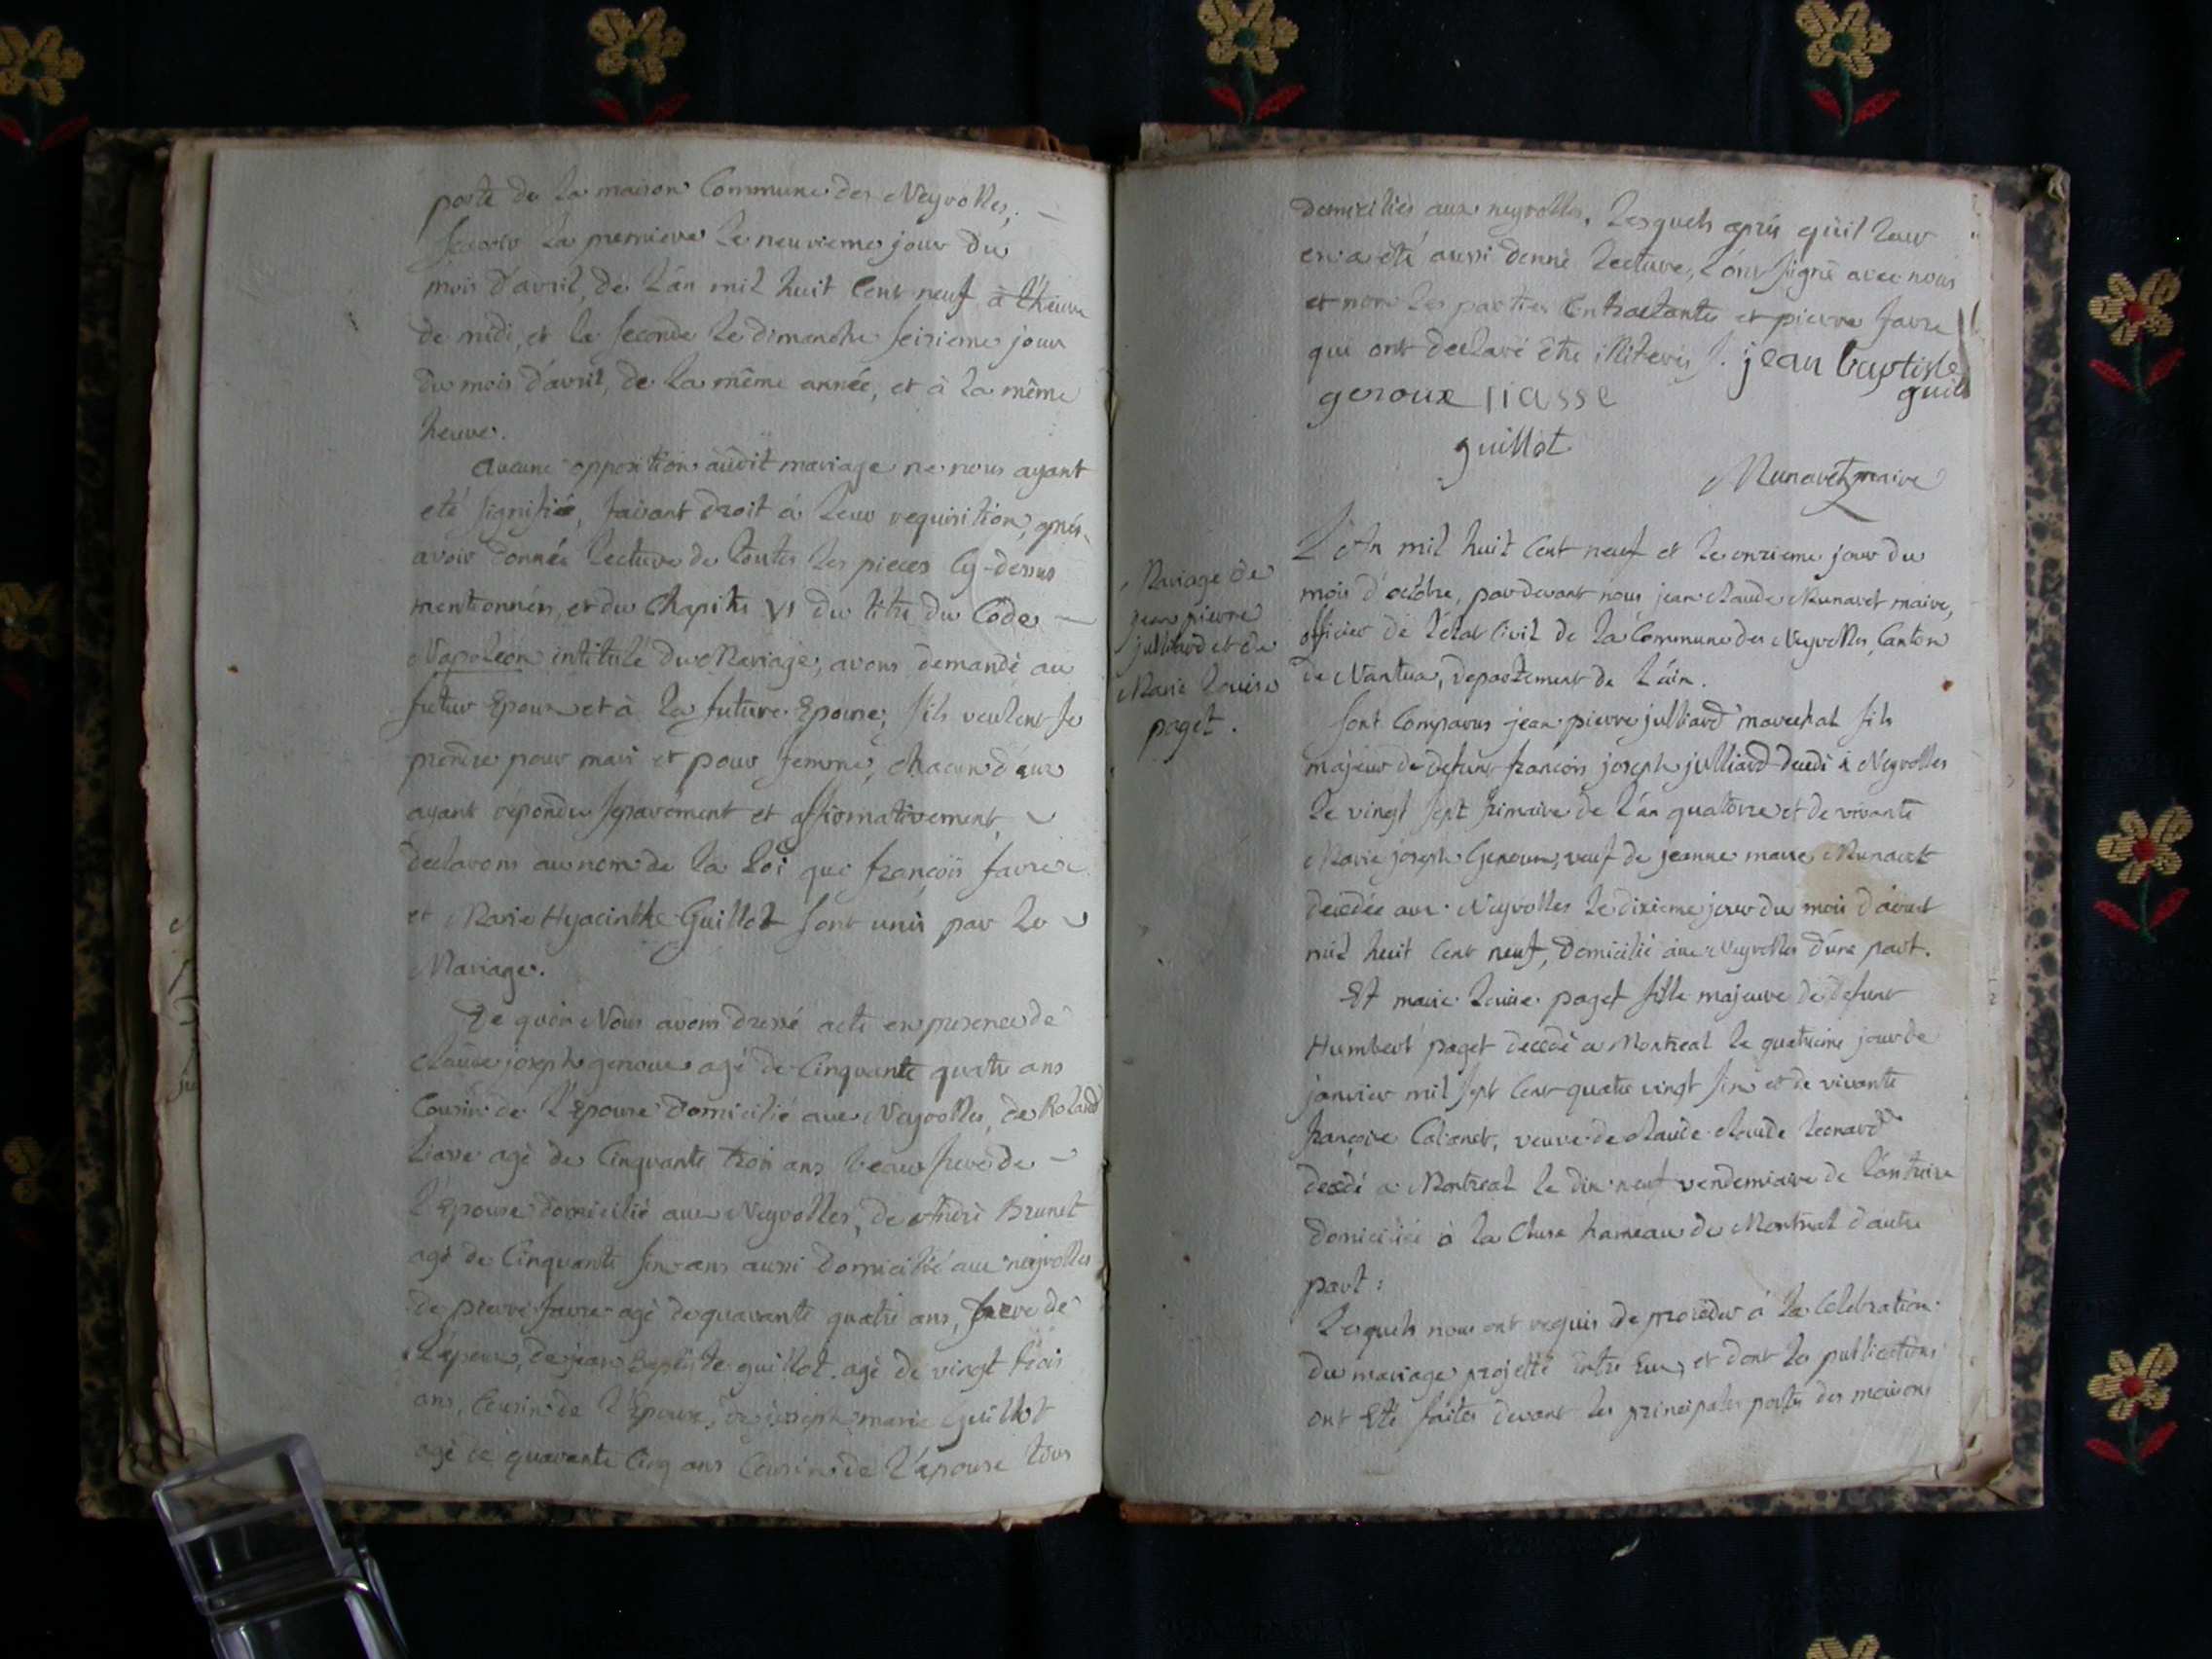 porte de la maison Commune des Neyrolles,
scavoir la premiere le neuvieme jour du
mois d'avril, de l'an mil huit Cent neuf à l'heure
de midi, et la seconde le dimanche seizieme jour
du mois d'avril, de la même année, et à la même
heure.
Aucune opposition audit mariage ne nous ayant
eté signifiée, faisant droit à leur requisition, après
avoir donnée lecture de toutes les pieces Cy-dessus
mentionnées, et du Chapitre VI du titre du Code
Napoléon intitulé du Mariage, avons demandé au
futur Epoux et à la future Epouse, s'ils veulent se
prendre pour mari et pour femme, chacun d'eux
ayant répondu separément et affirmativement,
declarons au nom de la Loi que françois favre
et Marie Hyacinthe Guillot sont unis par le
Mariage.
De quoi Nous avons dressé acte en presence de
claude joseph genoux agé de Cinquante quatre ans
Cousin de l'Epouse domicilié aux Neyrolles, de Roland
liasse agé de Cinquante trois ans beau frere de
l'Epouse domicilié aux Neyrolles, de André Brunet
agé de Cinquante six ans aussi domicilié aux neyrolles
de pierre favre agé de quarante quatre ans, frere de
L'époux, de jean Baptiste guillot agé de vingt trois
ans, Cousin de l'Epouse, de joseph marie Guillot
agé de quarante Cinq ans Cousin de l'épouse tous
domiciliés aux neyrolles, lesquels après qu'il leur
en a été aussi donné lecture, l'ont signé avec nous
et non les parties Contractantes et pierre favre
qui ont declaré être illiterés. jean baptiste
genoux liasse guill
guillot
Munaret maire
Mariage de
jean pierre
julliard et de
Marie Louise
paget.
L'An mil huit Cent neuf et le onzieme jour du
mois d'octobre, pardevant nous jean claude Munaret maire,
officier de l'état Civil de la Commune des Neyrolles, Canton
de Nantua, departement de l'ain.
sont Comparus jean pierre julliard marechal fils
majeur de defunt françois joseph julliard decedé à Neyrolles
le vingt sept frimaire de l'an quatorze et de vivante
Marie joseph Genoux, veuf de jeanne marie Munaret
decedée aux Neyrolles le dixieme jour du mois d'avril
mil huit Cent neuf, domicilié aux Neyrolles d'une part.
Et marie Louise paget fille majeure de defunt
Humbert paget decedé a Montreal le quatrieme jour de
janvier mil sept Cent quatre vingt six et de vivante
françoise veuve de claude claude Leonard
decedé a Montreal le dix neuf vendemiaire de l'an treize
domiciliée à la Cluse hameau de Montreal d'autre
part :
Lesquels nous ont requis de proceder à la Celebration
du mariage projetté entre Eux, et dont les publications
ont Eté faites devant les principales portes des maisons